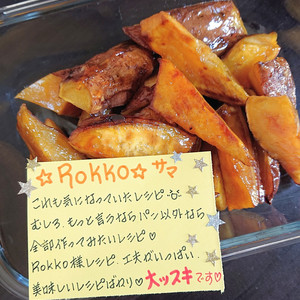 ☆Rokko☆サマ
これも気になっていたレシピ
むしろ、もっと言うならパン以外なら
全部作ってみたいレシピ♡
Rokko様レシピ、工夫がいっぱい、
美味しいレシピばかり♡大ッスキです♡